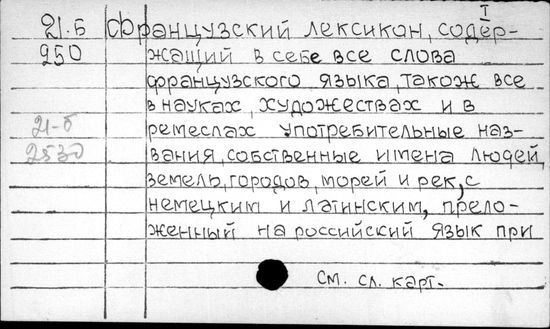 I
21.Б Французский лексикон, содер-
250 жащий в себе все слова
французского языка, також все
в науках, художествах и в
21-б ремеслах употребительные наз-
2530 вания, собственные имена людей,
земель, городов, морей и рек, с
немецким и латинским, прело-
женный на российский язык при
См. сл. карт.